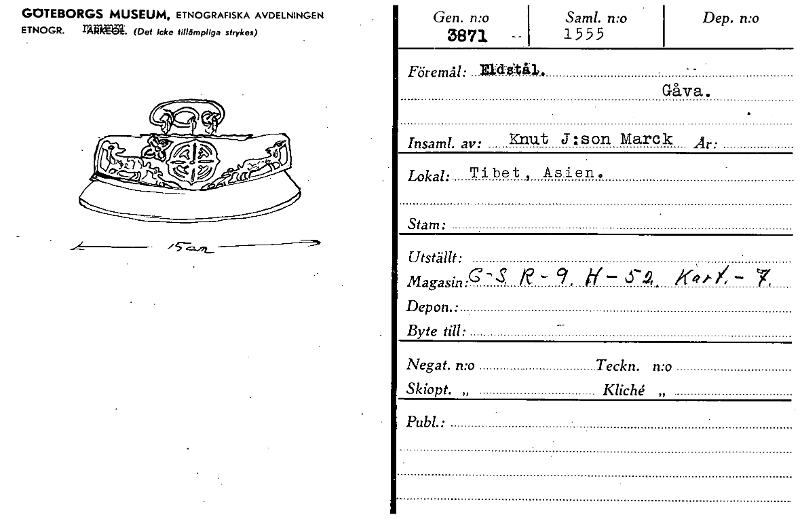 GÖTEBORGS MUSEUM, ETNOGRAFISKA AVDELNINGEN
ETNOGR. ARKEOL. (Det icke tillämpliga strykes)
15 cm
Gen. n:o Saml. n:o Dep. n:o
3871 1555
Föremål: Eldstål.
Gåva.
Insaml. av: Knut J:son Marck År:
Lokal: Tibet, Asien.
Stam:
Utställt:
Magasin: G-S R-9. H-52. Kart.-7.
Depon.:
Byte till:
Negat. n:o Teckn. n:o
Skiopt. „ Kliché „
Publ.: